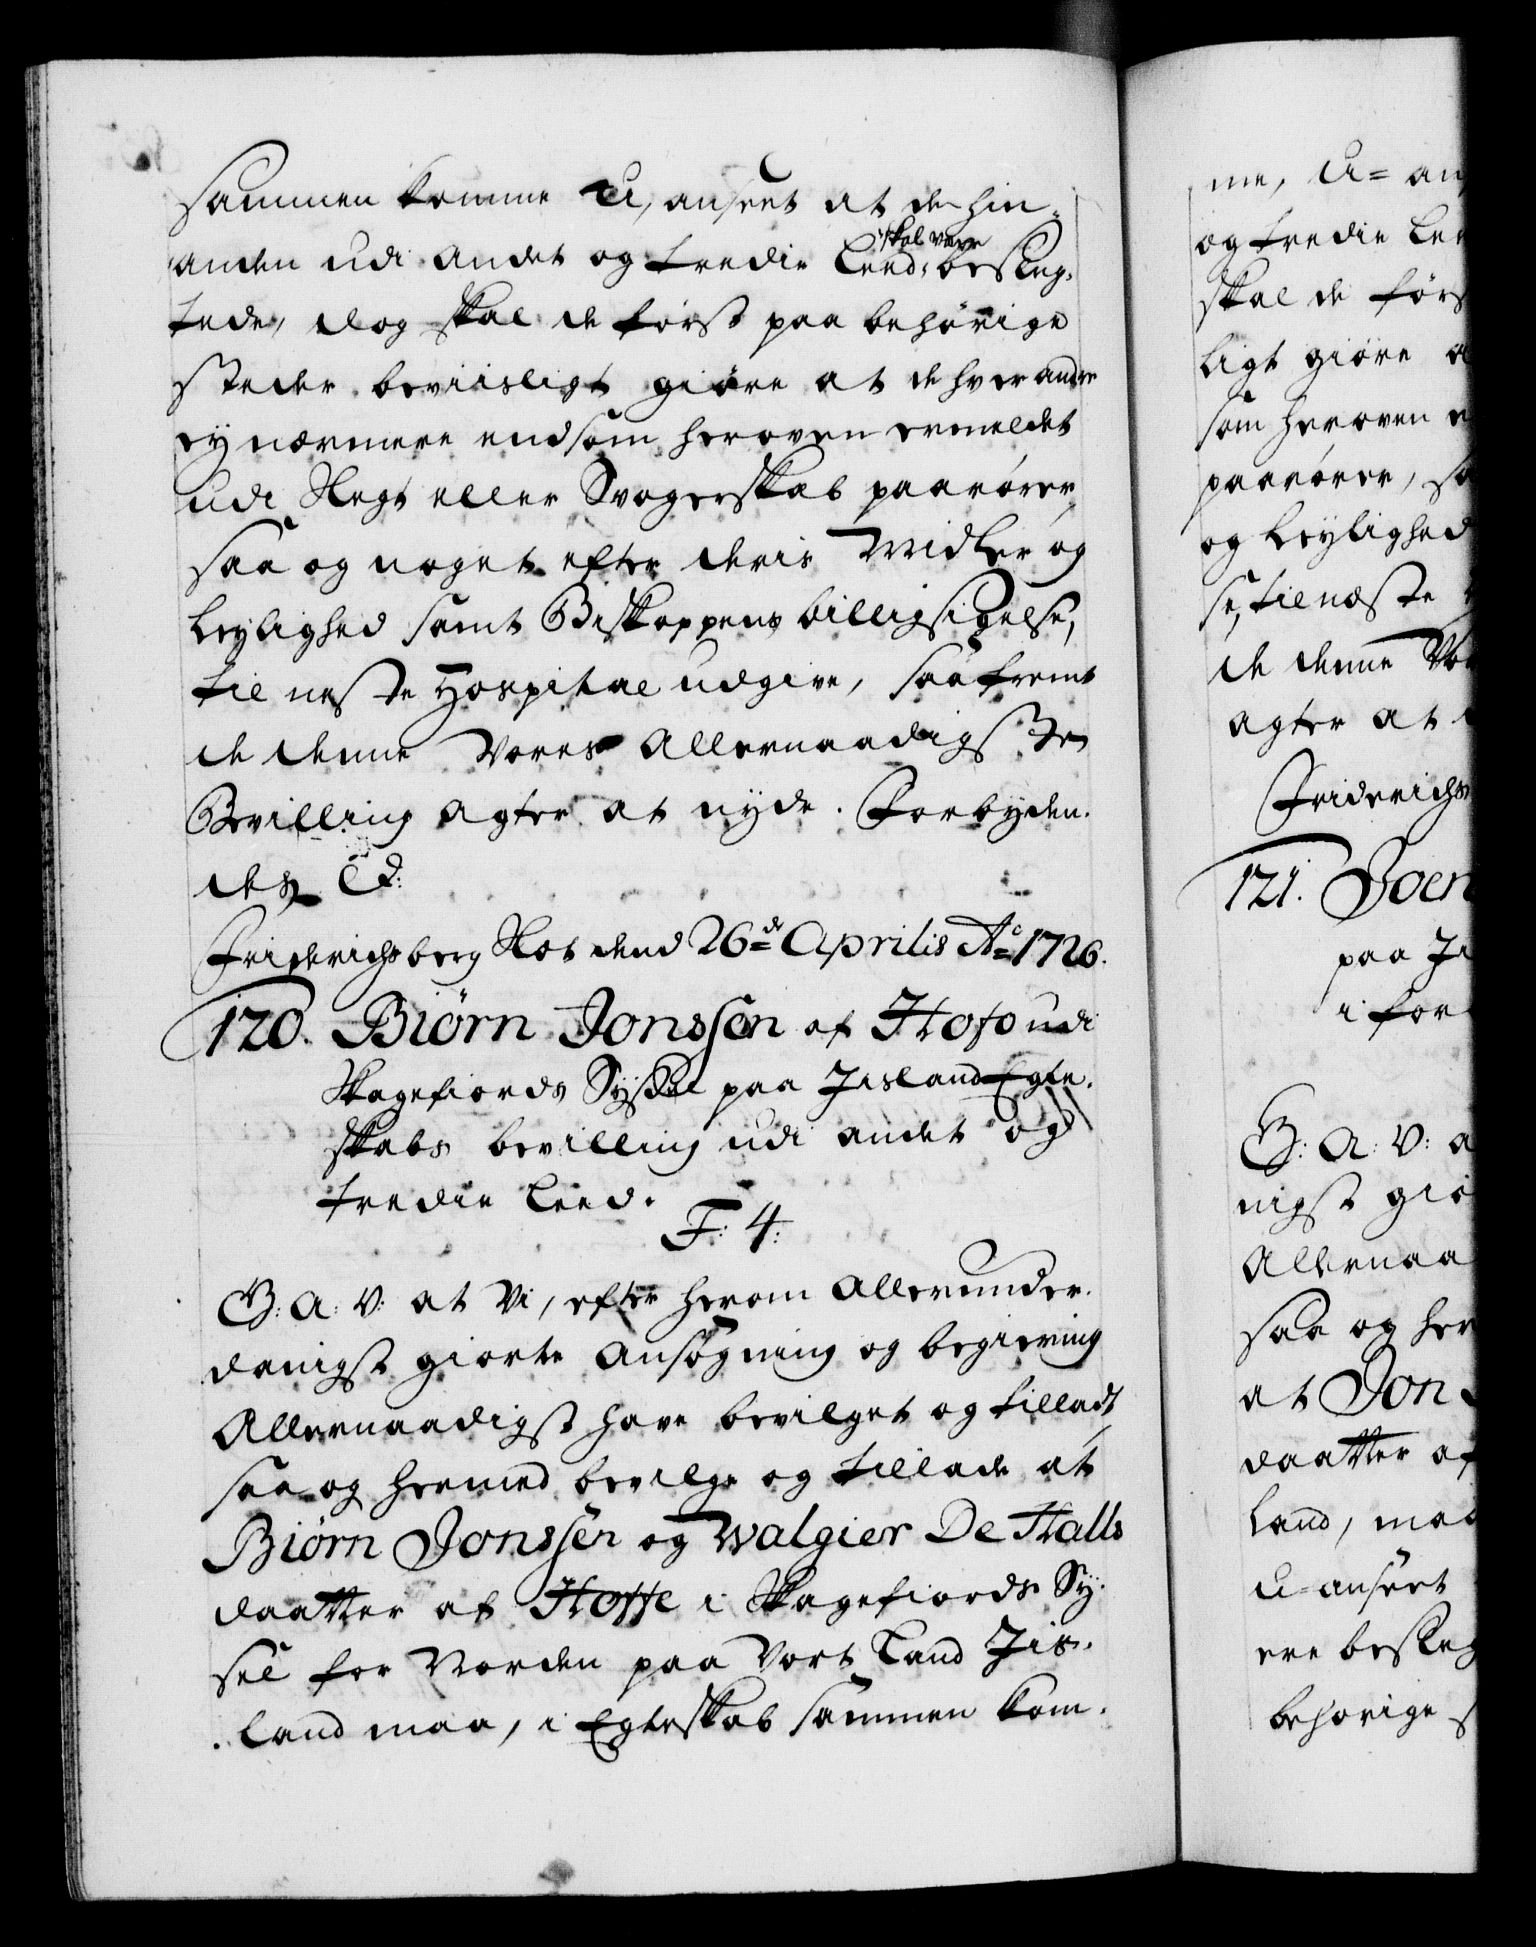 sammen komme U, anseet at de hin-
anden udi andet og tredie Leed skal være beslæg-
tede, dog skal de først paa behørige
stæder beviisligt giøre at de hverandre
ey nærmere end som heroven ermeldet
udi Slegt eller Svogerskab paarører,
saa og noget efter deris Midler og
Leylighed samt Biskoppens billigsigelse,
til neste Hospital udgive, saafremt
de denne Vores Allernaadigste
Bevilling agter at nyde. Forbyden-
des Etc:
Friderichsberg Slot dend 26de Aprilis Ao 1726.
120. Biørn Jonssøn af Hofo udi
Skagefiords Syssel paa Jisland Egte-
skabs bevilling udi andet og
tredie Leed.
F: 4:
G: A: V: at Vi, efter herom allerunder-
danigst giorte Ansøgning og begiering
Allernaadigst have bevilget og tilladt,
saa og hermed bevilge og tillade at
Biørn Jonssøn og Walgier De Halls
daatter af Hoffe i Skagefiords Sy-
sel for Norden paa Vort Land Jis-
land maa, i Egteskab sammen kom-
me, U= an
og tredie Lee
skal de førs
ligt giøre a
som heroven e
paarører, sa
og Leylighed
se, til næste
de denne Vo
agter at
Friderichs
121. Joen
paa Ji
i for
G: A: V: a
nigst giø
Allernaa
saa og her
at Jon
daatter af
Land, maa
u=anseet
ere besleg
behørige s